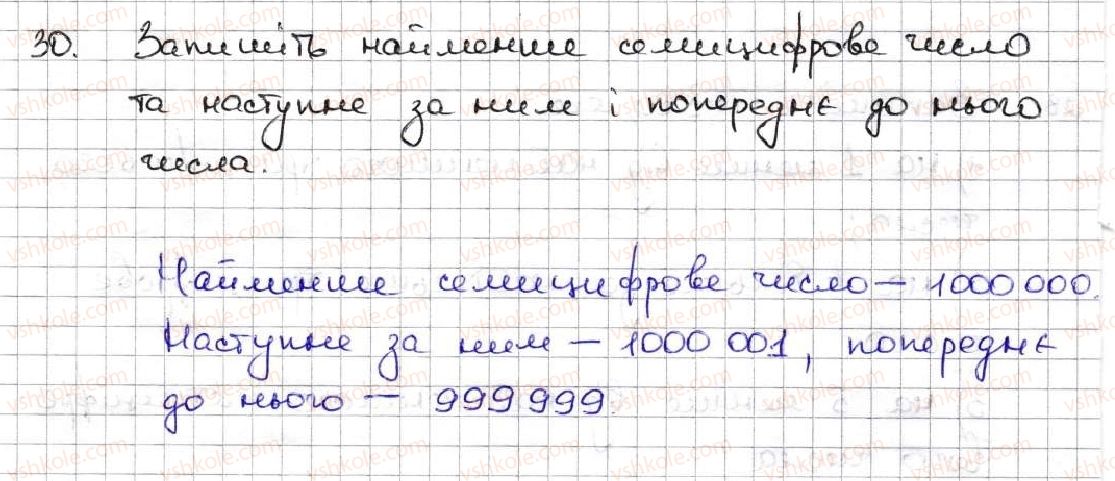 30. Запишіть найменше семицифрове число
та наступне за ним і попереднє до нього
числа.
Найменше семицифрове число – 1000 000.
Наступне за ним – 1000 001, попереднє
до нього – 999 999.